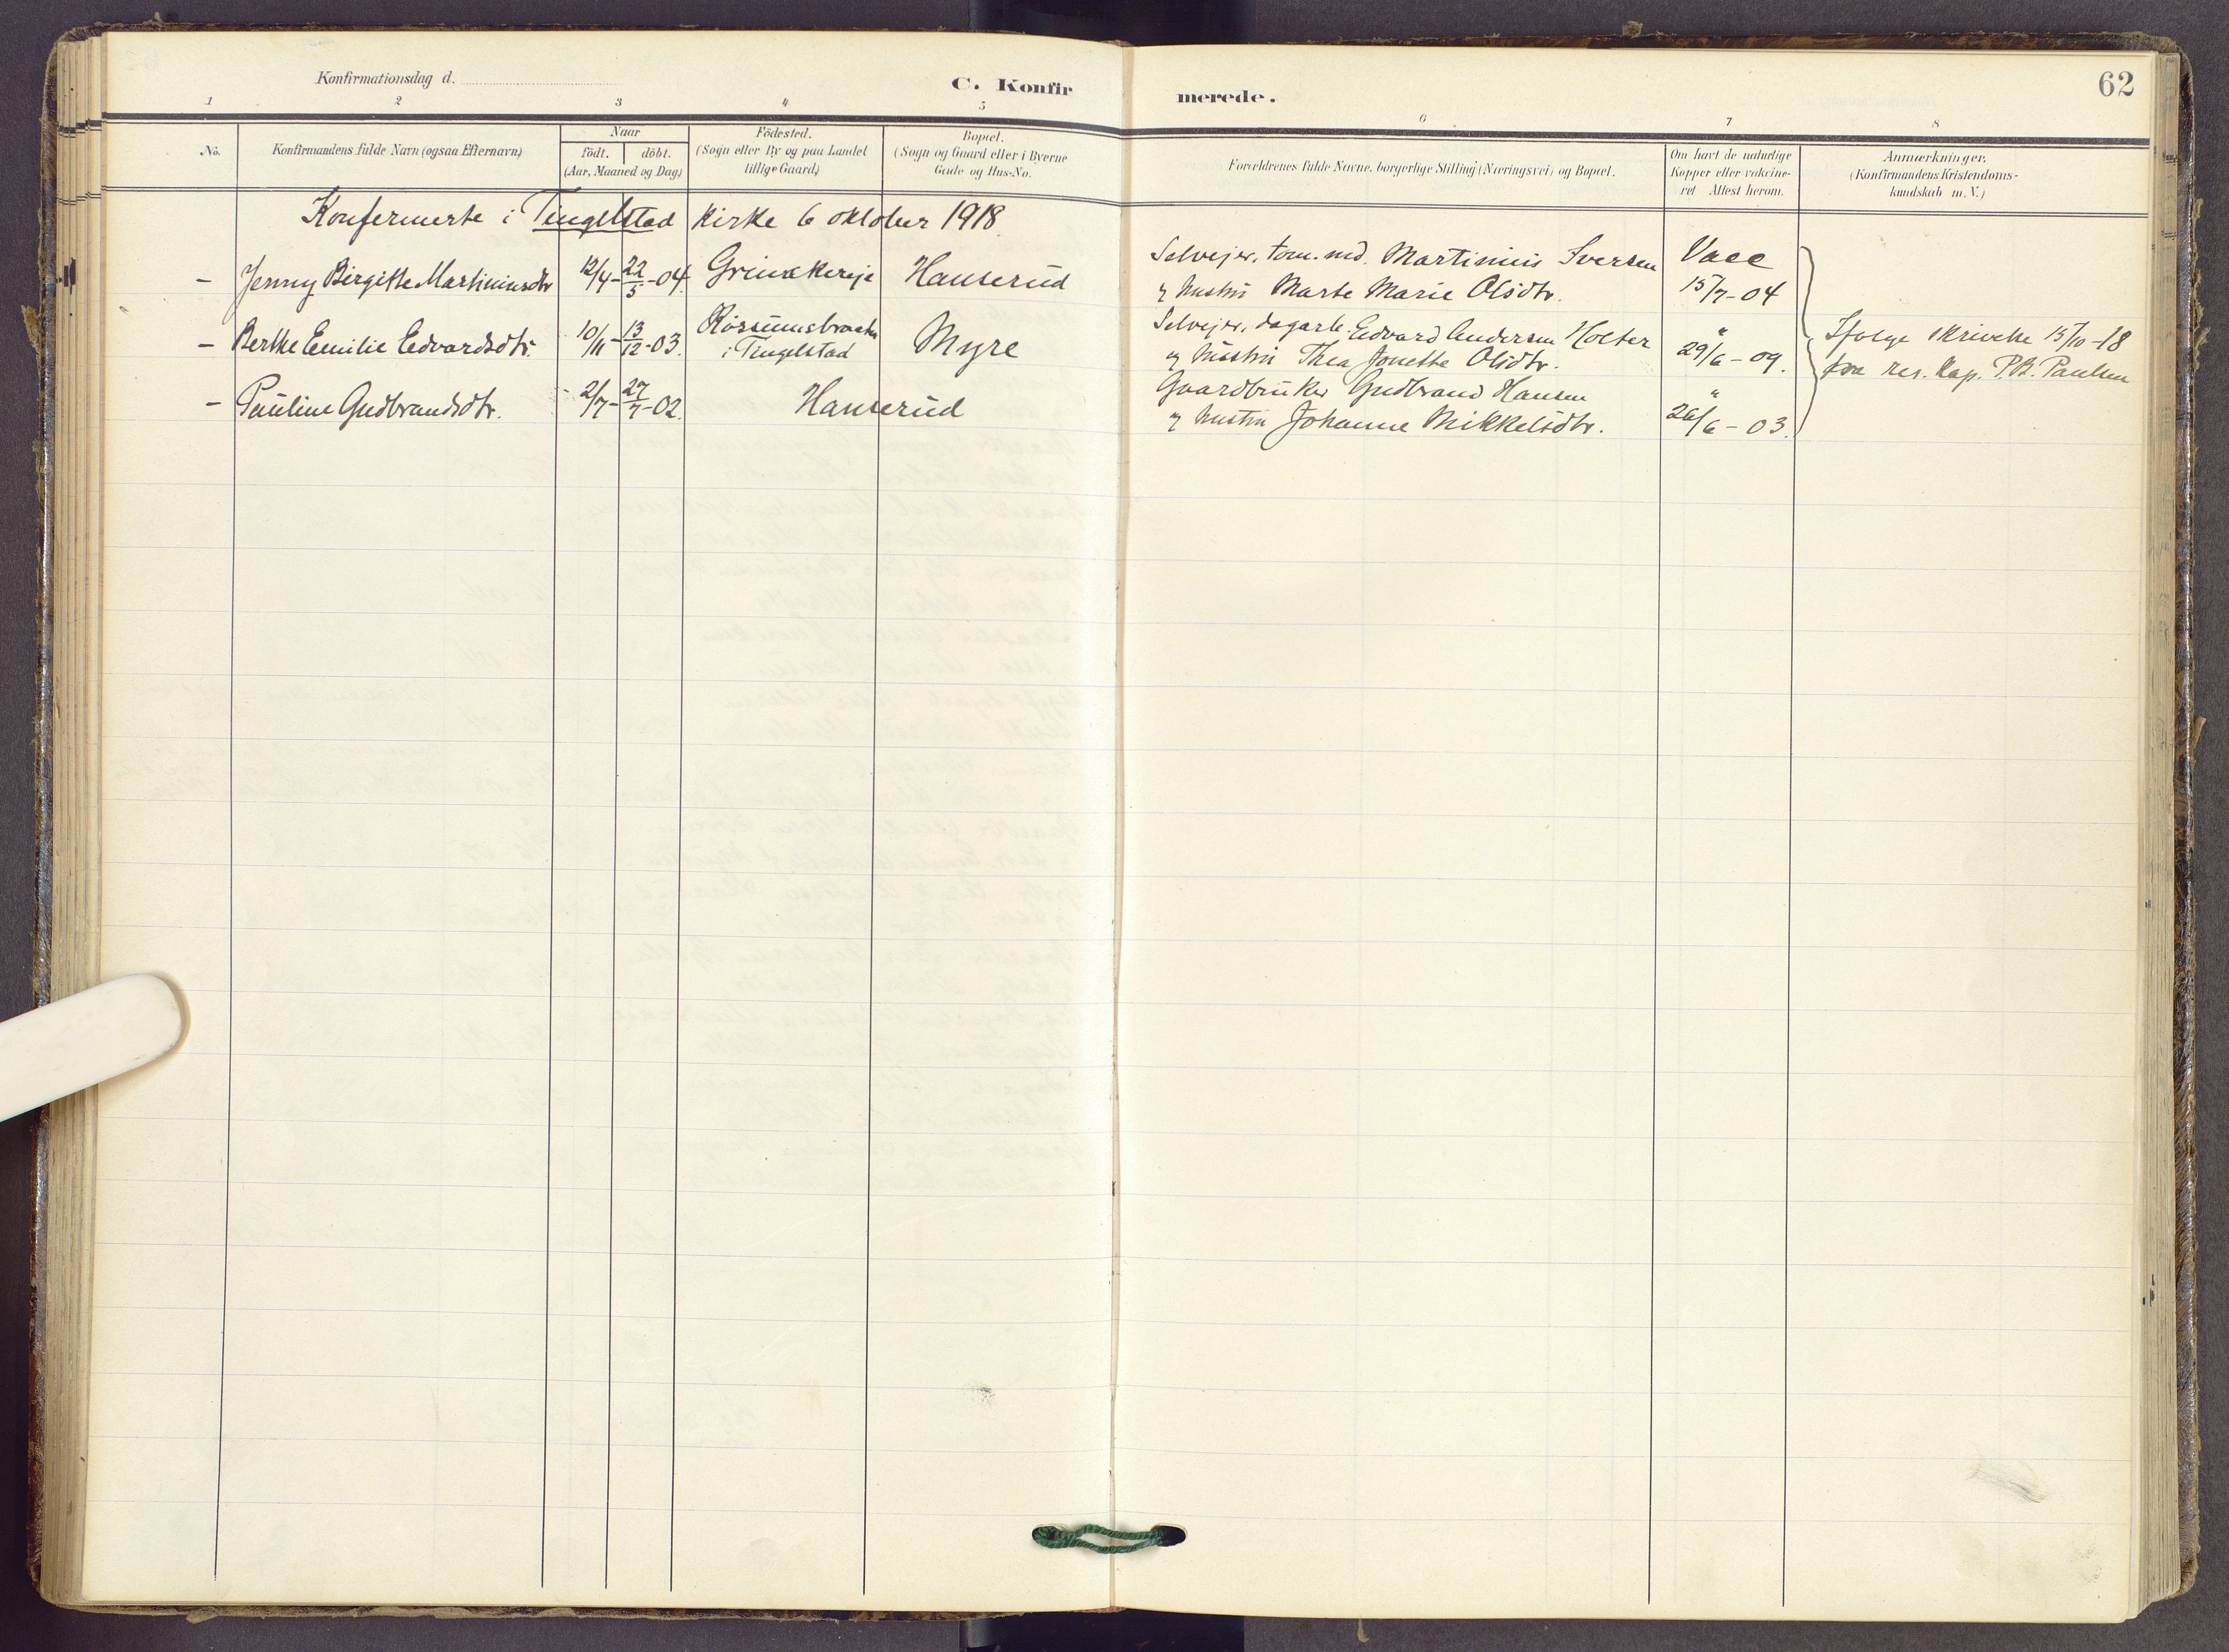 62
Konfirmationsdag d.
C. Konfirmerede.
1 2 3 4 5 6 7 8
No.
Konfirmandens fulde Navn (ogsaa Efternavn)
Naar
födt. döbt.
(Aar, Maaned og Dag)
Födested.
(Sogn eller By og paa Landet
tillige Gaard)
Bopæl.
(Sogn og Gaard eller i Byerne
Gade og Hus-No.
Forældrenes fulde Navne, borgerlige Stilling (Næringsvei) og Bopæl.
Om havt de naturlige
Kopper eller vakcine-
ret Attest herom.
Anmærkninger.
(Konfirmandens Kristendoms-
kundskab m. V.)
Konfermerte i Tingelstad Kirke 6 oktober 1918
– Jenny Birgitte Martiniusdtr 12/4 - 22/5 - 04. Hanserud
Selvejer, tøm.md. Martinius Iversen
og hustru Marte Marie Olsdtr.
Vacc
15/7 - 04
– Berthe Emilie Edvardsdtr. 10/11 - 13/12 - 03.
i Tingelstad
Myre
Selvejer, dagarb. Edvard Andersen Holter
og hustru Thea Jonette Olsdtr.
" 29/6 - 09.
– Pauline Gudbrandsdtr. 2/7 - 27/7 - 02. Hanserud
Gaardbruker Gudbrand Hansen
og hustru Johanne Mikkelsdtr.
" 26/6 - 03.
Ifølge skrivelse 15/10 - 18
fra res. kap. P.B. Paulsen